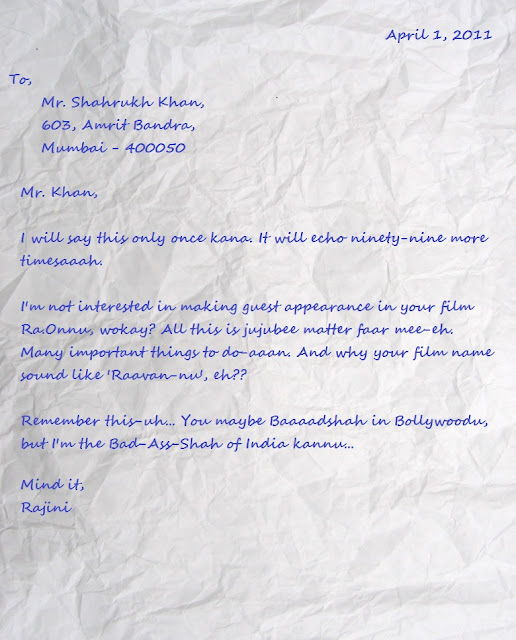 April 1, 2011
To,
Mr. Shahrukh Khan,
603, Amrit Bandra,
Mumbai - 400050
Mr. Khan,
I will say this only once kana. It will echo ninety-nine more
timesaaah.
I'm not interested in making guest appearance in your film
Ra.Onnu, wokay? All this is jujubee matter faar mee-eh.
Many important things to do-aaan. And why your film name
sound like 'Raavan-nu', eh??
Remember this-uh... You maybe Baaaadshah in Bollywoodu,
but I'm the Bad-Ass-Shah of India kannu...
Mind it,
Rajini